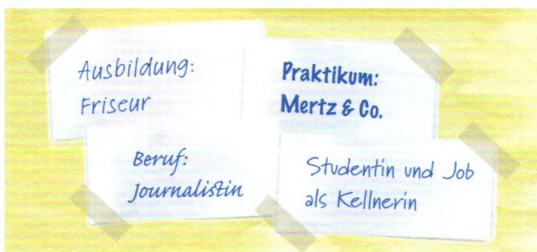 Ausbildung:
Friseur
Praktikum:
Mertz & Co.
Beruf:
Journalistin
Studentin und Job
als Kellnerin